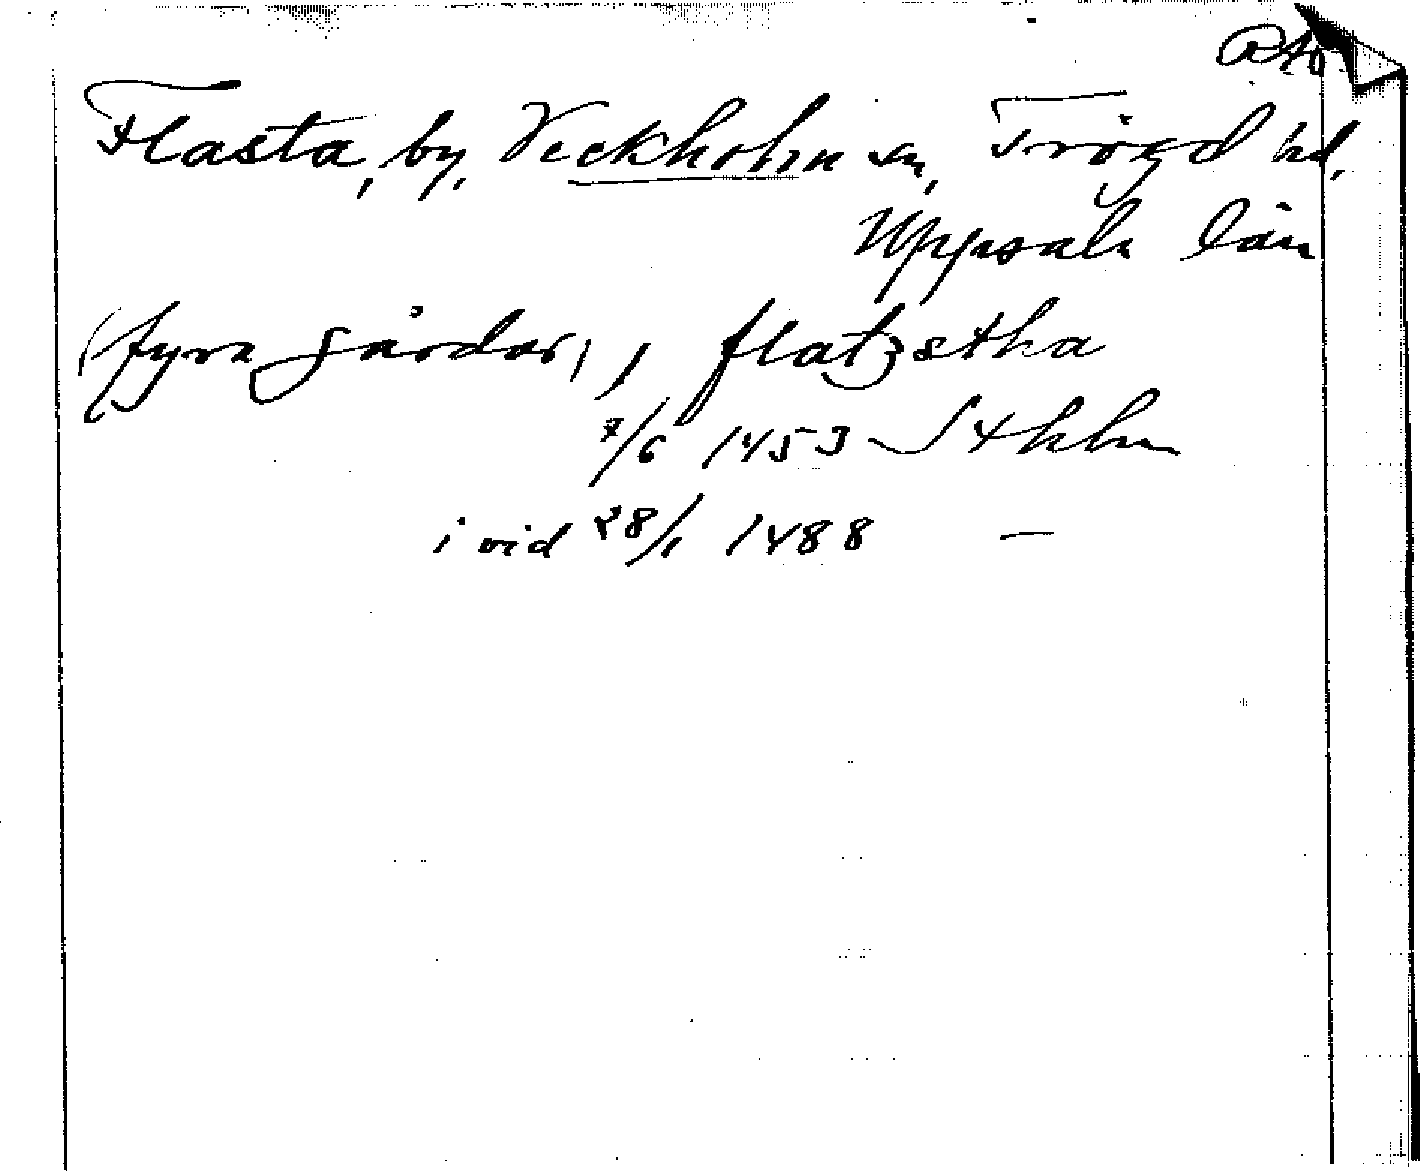 RAp
Flasta, by, Veckholm sn, Trögd hd,
Uppsala län
(fyra gårdar), flatzstha
7/6 1453 Sthlm
i vid 28/1 1488 —